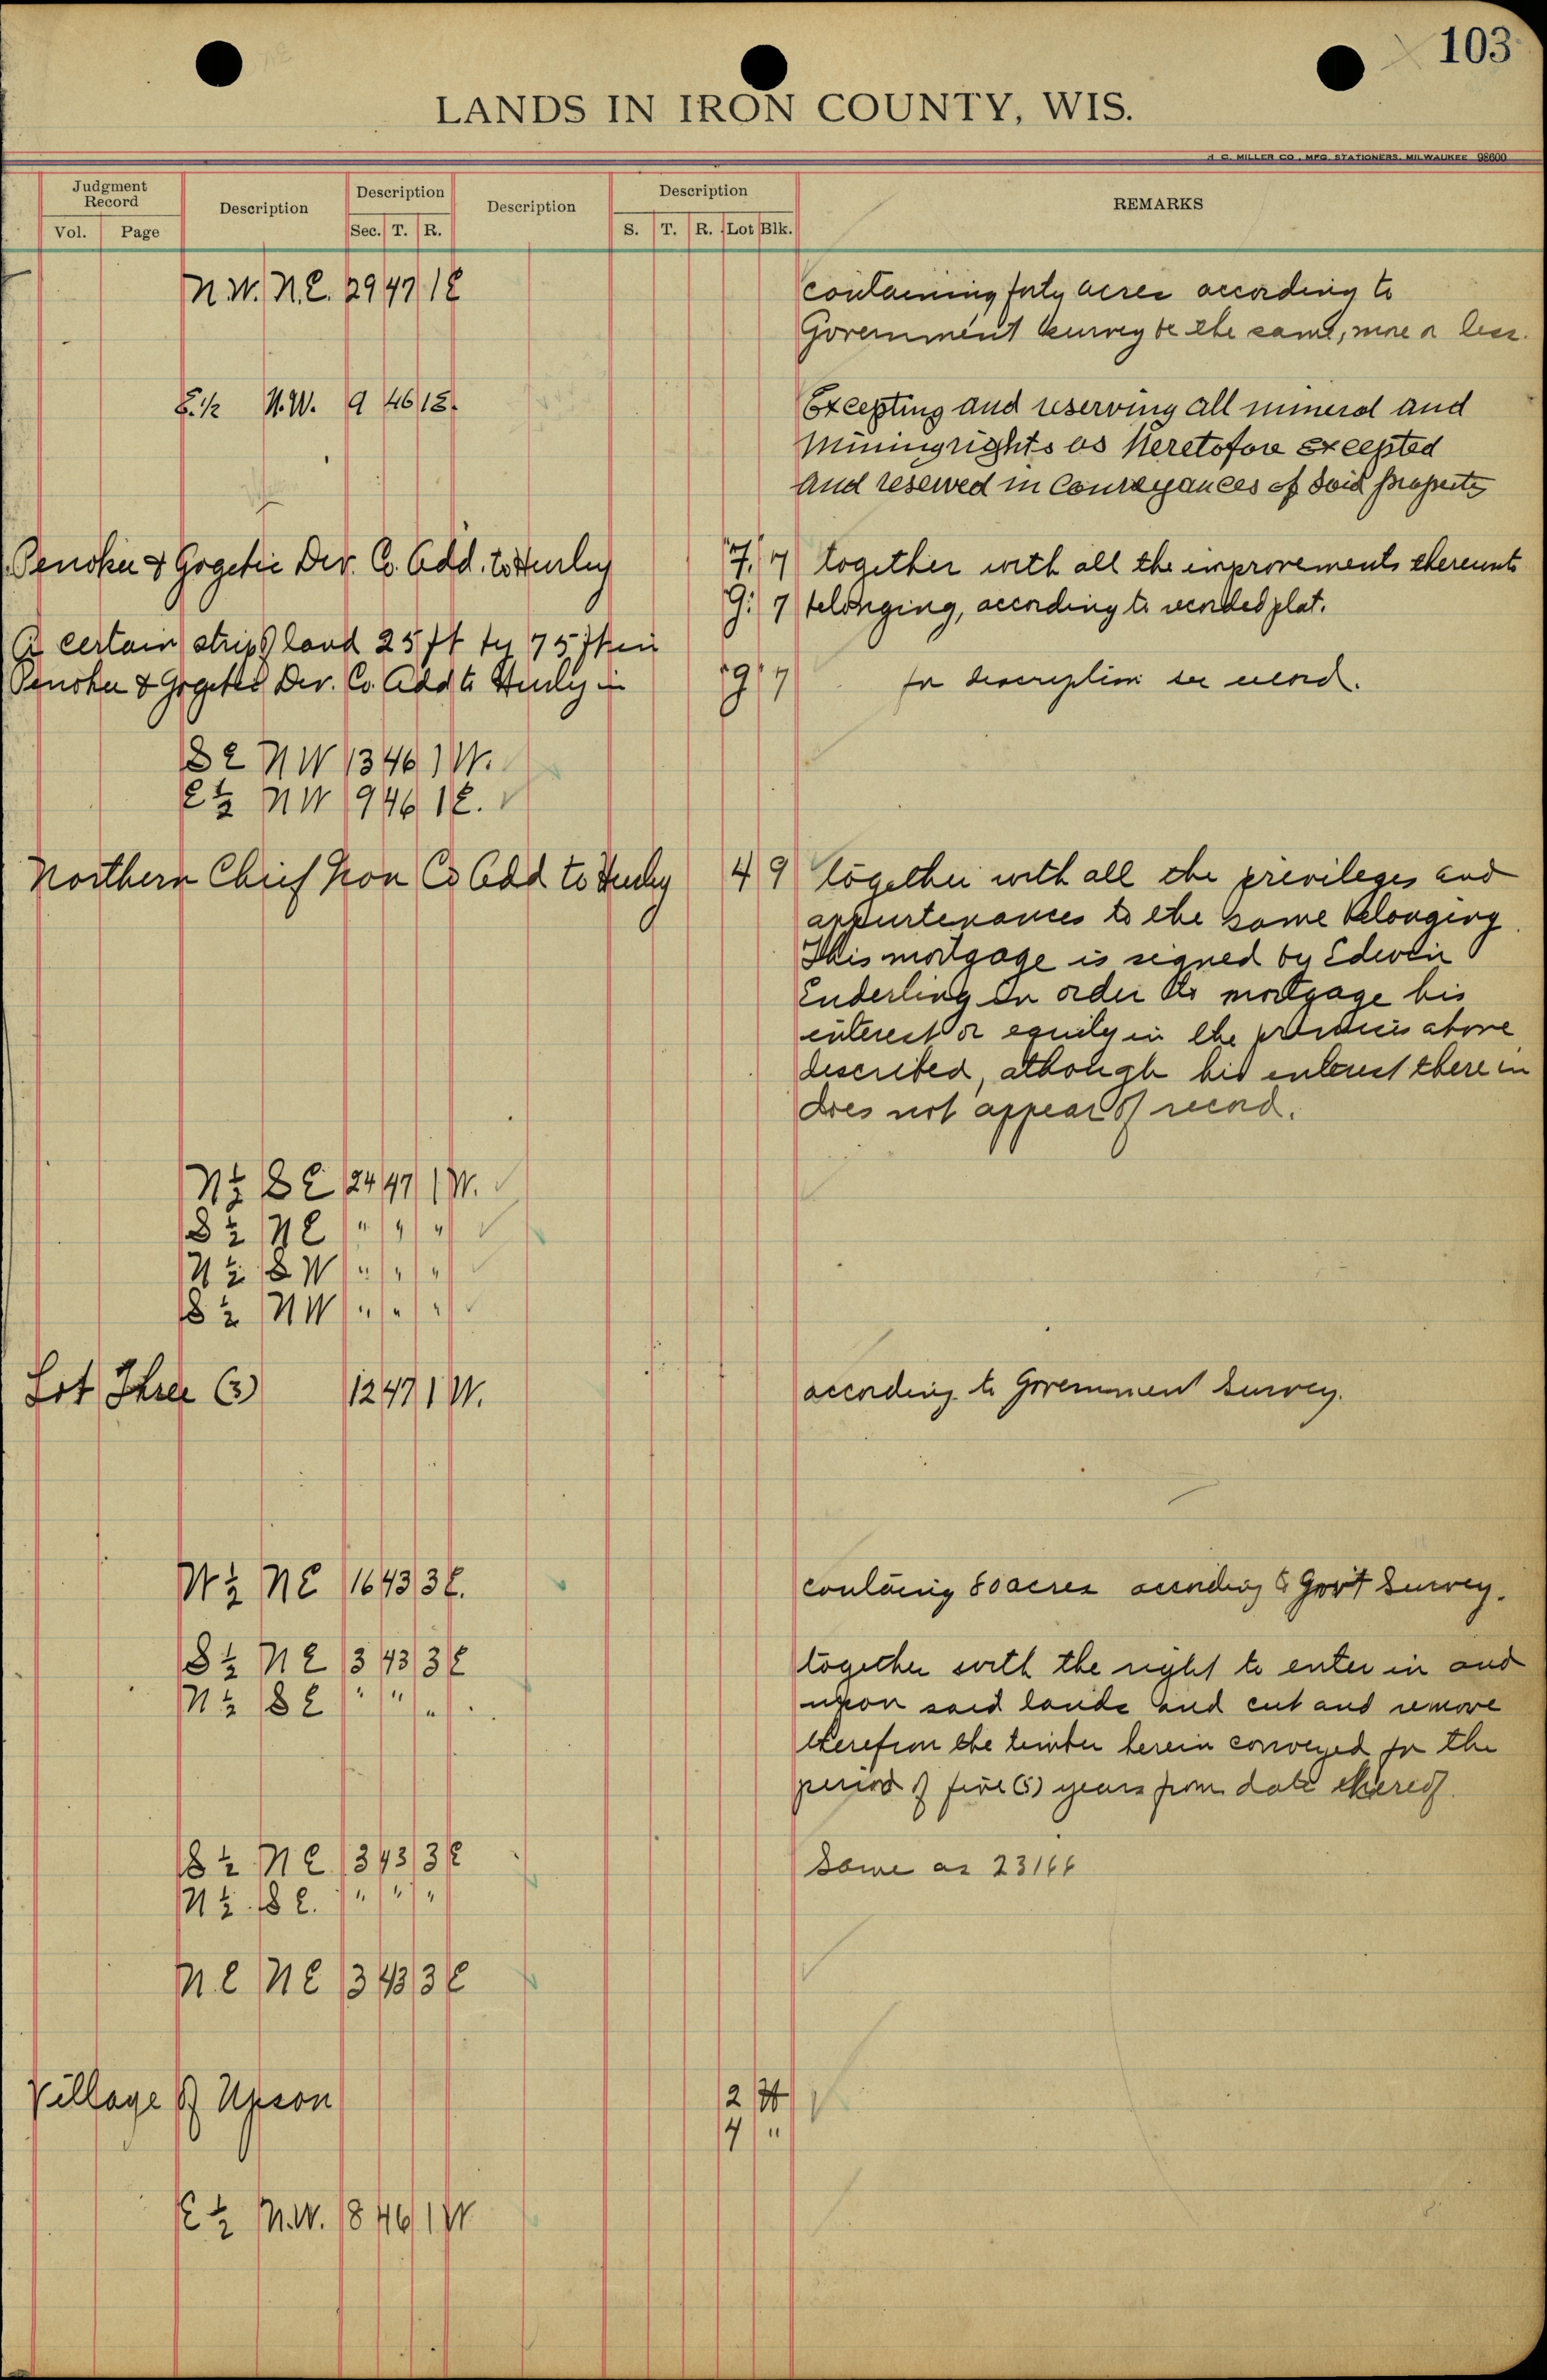 103
LANDS IN IRON COUNTY, WIS.
H. C. MILLER CO., MFG. STATIONERS, MILWAUKEE 98600
Judgment Record Description Description Description Description REMARKS
Vol. Page Sec. T. R. S. T. R. Lot Blk.
N.W. N.E. 29 47 1E containing forty acres according to
Government Survey be the same, more or less.
E.1/2 N.W. 9 46 1E. Excepting and reserving all mineral and
Mining rights as Heretofore Excepted
And reserved in Conveyances of said property
Penokee & Gogebic Dev. Co. Add. to Hurley 7. 7 together with all the improvements thereunto
9. 7 belonging, according to recorded plat.
A certain strip of land 25 ft by 75 ft in
Penokee & Gogebic Dev. Co. Add to Hurley in 9 7 for description see record.
SE NW 13 46 1W.
E½ NW 9 46 1E.
Northern Chief Iron Co Add to Hurley 4 9 together with all the privileges and
appurtenances to the same belonging.
This mortgage is signed by Edwin
Enderling in order to mortgage his
interest or equity in the premises above
described, although his interest therein
does not appear of record.
N½ SE 24 47 1W.
S½ NE " " "
N½ SW " " "
S½ NW " " "
Lot Three (3) 12 47 1W. according to Government Survey.
W½ NE 16 43 3E. containing 80 acres according to Gov't Survey.
S½ NE 3 43 3E together with the right to enter in and
N½ SE " " " upon said lands and cut and remove
therefrom the timber herein conveyed for the
period of five (5) years from date thereof.
S½ NE 3 43 3E Same as 23166
N½ SE. " " "
NE NE 3 43 3E
Village of Upson 2
4 "
E½ N.W. 18 46 1W